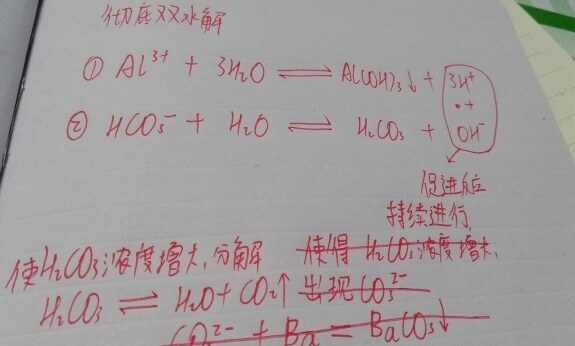 彻底双水解
① Al³⁺ + 3H₂O ⇌ Al(OH)₃↓ + 3H⁺
② HCO₃⁻ + H₂O ⇌ H₂CO₃ + OH⁻
促进后
持续进行
使H₂CO₃浓度增大,分解 使得 H₂CO₃浓度增大,
H₂CO₃ ⇌ H₂O + CO₂↑ 出现CO₃²⁻
CO₃²⁻ + Ba = BaCO₃↓